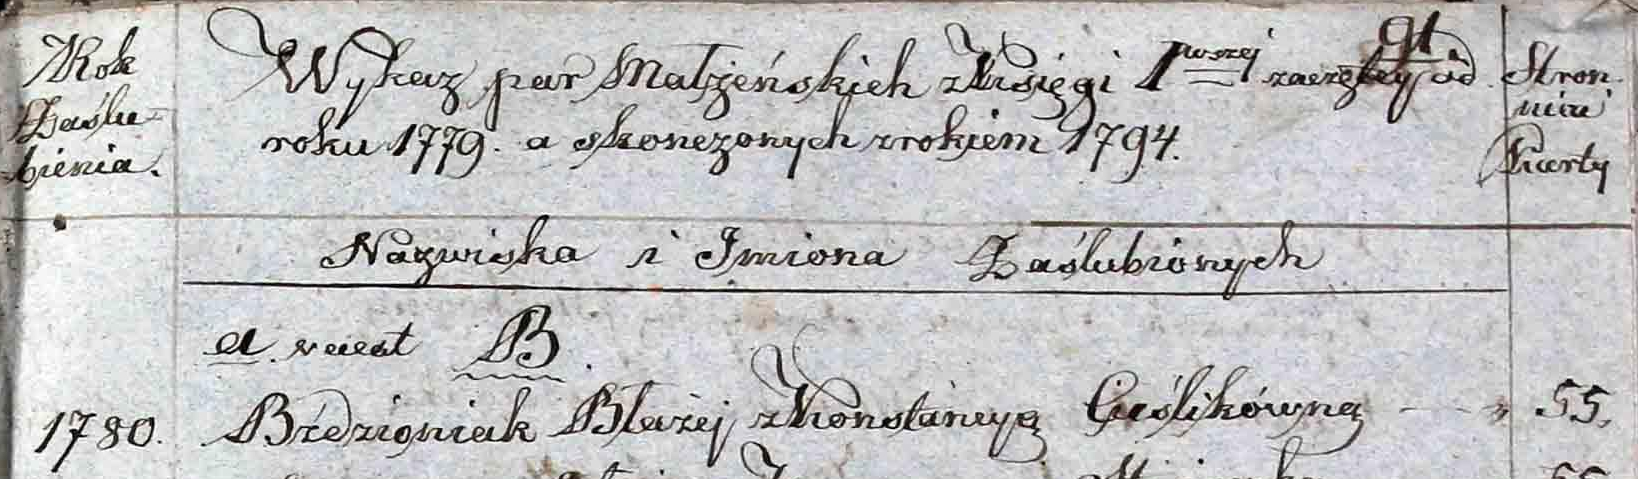 91.
Rok
Zaślu-
bienia.
Wykaz par Małżeńskich z Księgi 1 wszej zaczętej od
roku 1779. a skonczonych z rokiem 1794.
Stron-
nica
Karty
Nazwiska i Imiona Zaślubionych
A. vacat B.
1780. Bździoniak Błażej z Konstancyą Cieślikówną — „ 55.